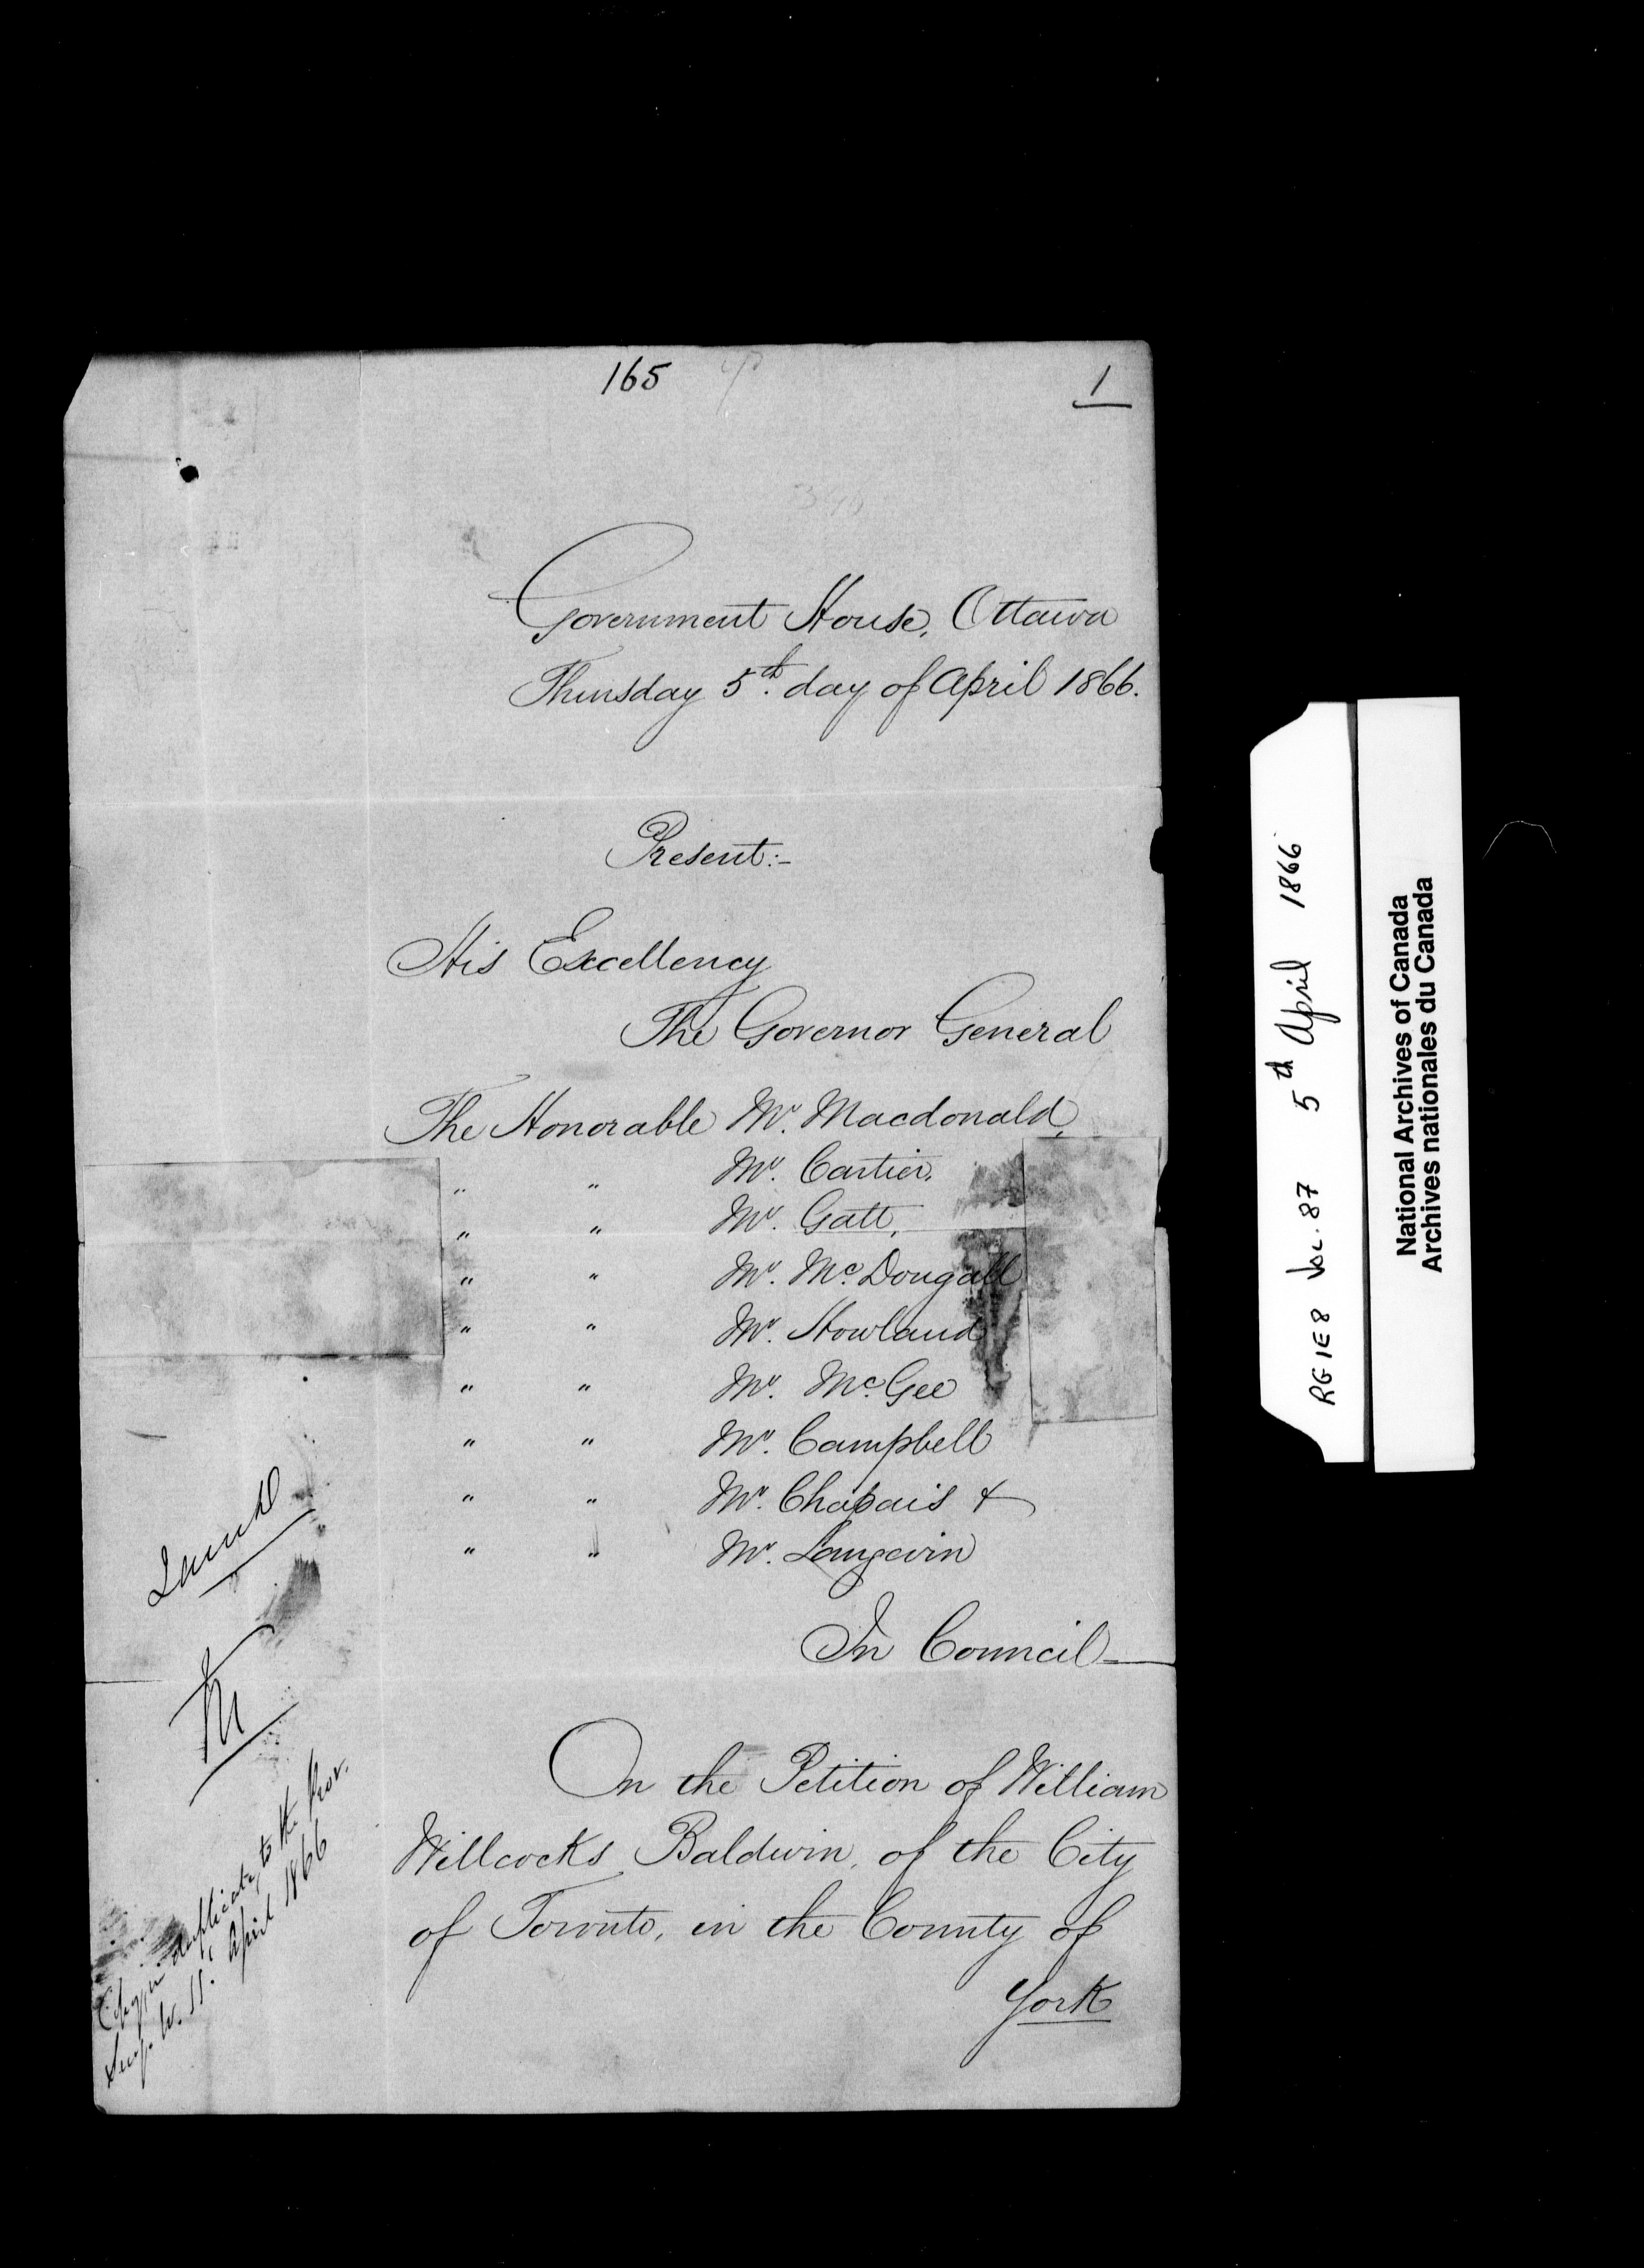 165
1
Government House, Ottawa
Thursday 5th. day of April 1866.
Present:-
His Excellency
The Governor General
The Honorable Mr. Macdonald,
" " Mr. Cartier,
" " Mr. Galt,
" " Mr. McDougall
" " Mr. Howland
" " Mr. McGee
" " Mr. Campbell
" " Mr. Chapais &
" " Mr. Langevin
In Council—
On the Petition of William
Willcocks Baldwin, of the City
of Toronto, in the County of
York
duplicate, to the Prov.
April 1866
RG 1E8 Vol. 87 5th April 1866
National Archives of Canada
Archives nationales du Canada